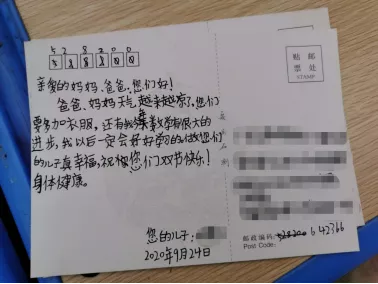 528200
亲爱的妈妈、爸爸,您们好!
爸爸、妈妈天气越来越凉了,您们
要多加衣服,还有我 数学有很大的
进步,我以后一定会好好学习的,做您们
的儿子真幸福,祝 您们双节快乐!
身体健康。
您的儿子:
2020年9月24日
贴邮
票处
STAMP
邮政编码: 642366
Post Code: